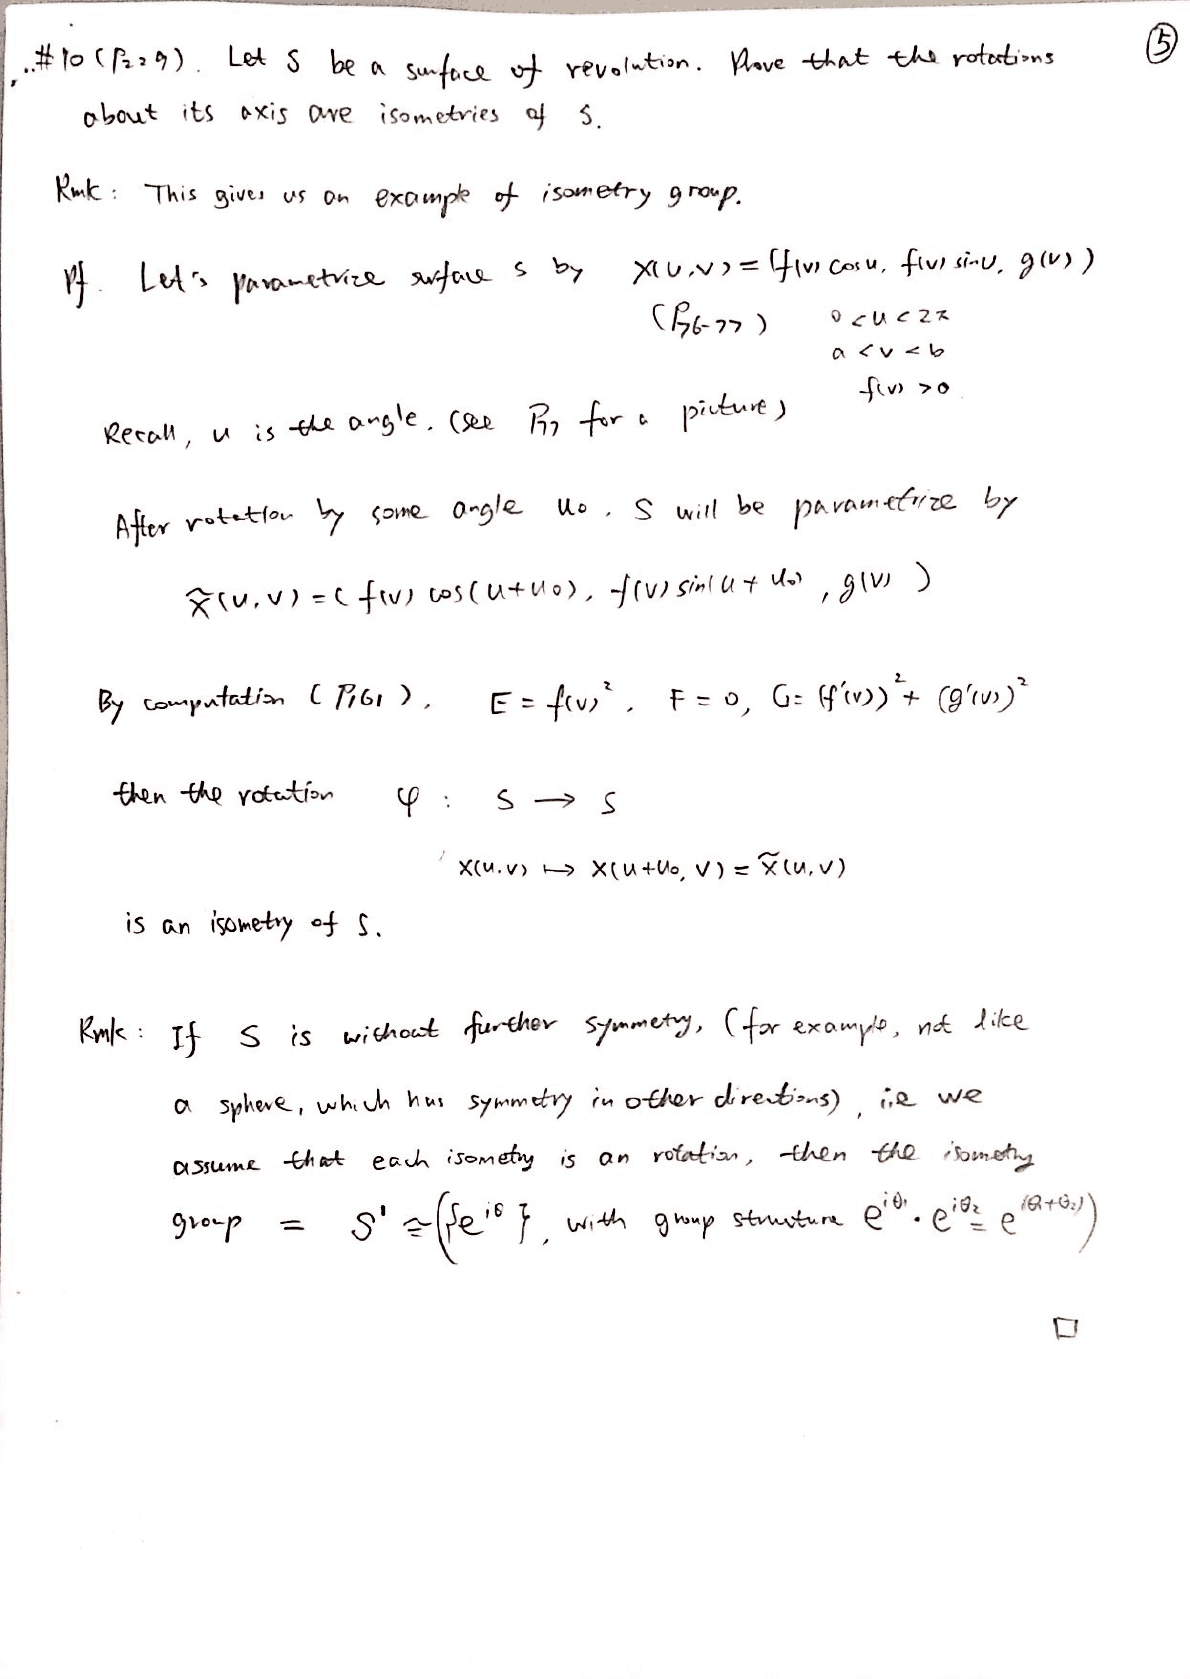 ⑤
#10 (P229). Let S be a surface of revolution. Prove that the rotations
about its axis are isometries of S.
Rmk: This gives us an example of isometry group.
Pf. Let's parametrize surface S by X(u,v) = (f(v) cos u, f(v) sin u, g(v))
(P76-77) 0<u<2π
a<v<b
f(v) >0
Recall, u is the angle. (see P77 for a picture)
After rotation by some angle u0, S will be parametrize by
x̃(u,v) = (f(v) cos(u+u0), f(v) sin(u+u0), g(v))
By computation (P161), E = f(v)², F = 0, G = (f'(v))² + (g'(v))²
then the rotation φ : S → S
X(u,v) ↦ X(u+u0, v) = x̃(u,v)
is an isometry of S.
Rmk: If S is without further symmetry, (for example, not like
a sphere, which has symmetry in other directions), i.e we
assume that each isometry is an rotation, then the isometry
group = S¹ ≅ ({e^{iθ}}, with group structure e^{iθ1} · e^{iθ2} = e^{i(θ1+θ2)})
□